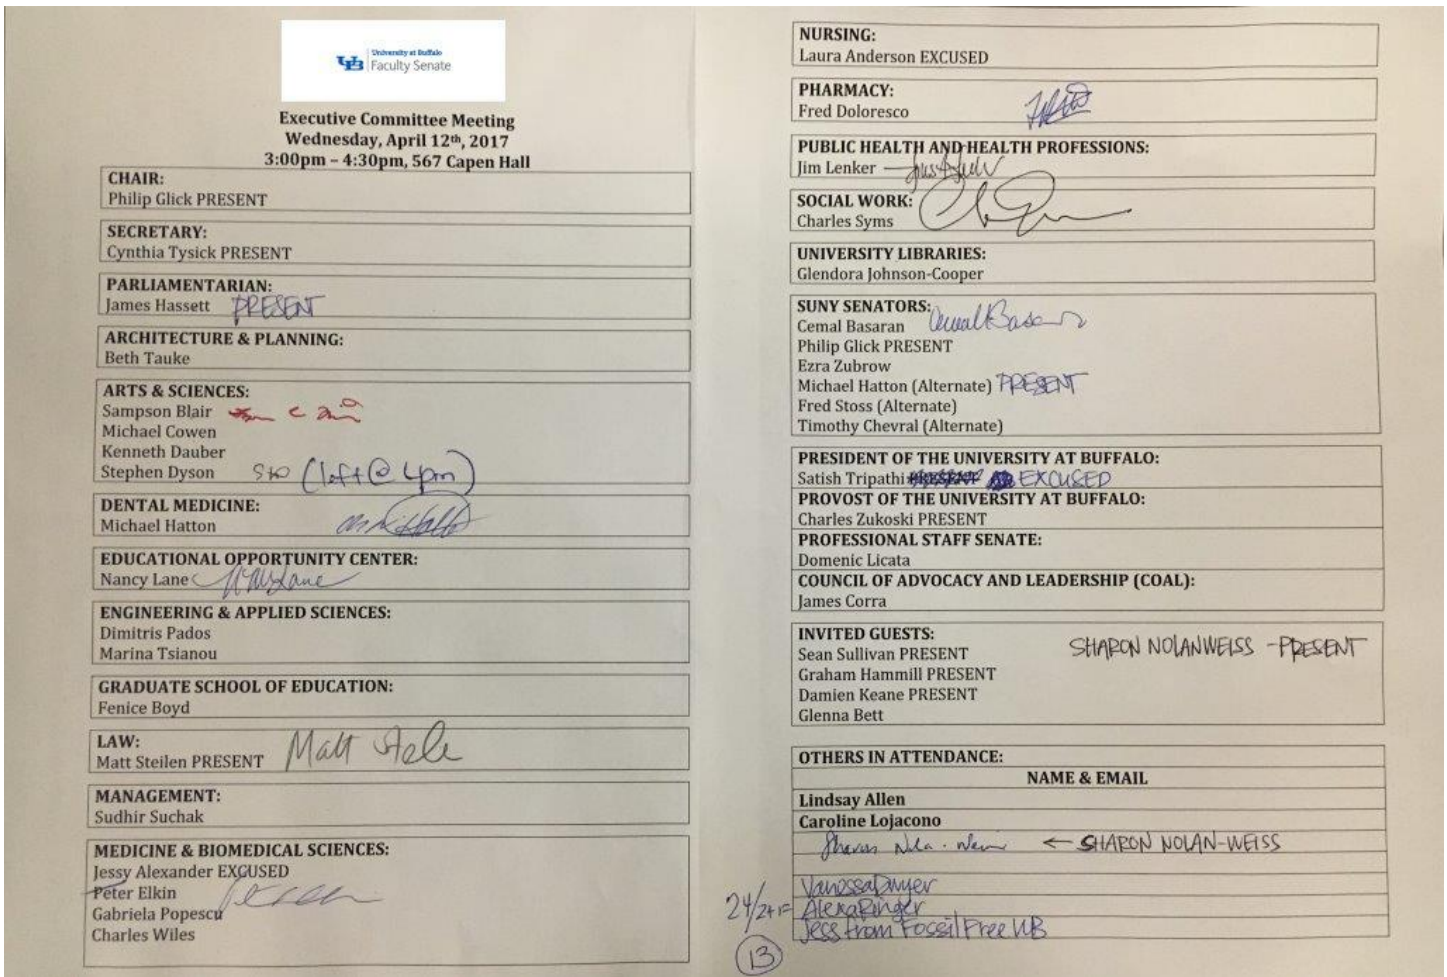 University at Buffalo
UB Faculty Senate
Executive Committee Meeting
Wednesday, April 12th, 2017
3:00pm – 4:30pm, 567 Capen Hall
CHAIR:
Philip Glick PRESENT
SECRETARY:
Cynthia Tysick PRESENT
PARLIAMENTARIAN:
James Hassett PRESENT
ARCHITECTURE & PLANNING:
Beth Tauke
ARTS & SCIENCES:
Sampson Blair
Michael Cowen
Kenneth Dauber
Stephen Dyson (left @ 4pm)
DENTAL MEDICINE:
Michael Hatton
EDUCATIONAL OPPORTUNITY CENTER:
Nancy Lane
ENGINEERING & APPLIED SCIENCES:
Dimitris Pados
Marina Tsianou
GRADUATE SCHOOL OF EDUCATION:
Fenice Boyd
LAW:
Matt Steilen PRESENT Matt
MANAGEMENT:
Sudhir Suchak
MEDICINE & BIOMEDICAL SCIENCES:
Jessy Alexander EXCUSED
Peter Elkin
Gabriela Popescu
Charles Wiles
NURSING:
Laura Anderson EXCUSED
PHARMACY:
Fred Doloresco
PUBLIC HEALTH AND HEALTH PROFESSIONS:
Jim Lenker
SOCIAL WORK:
Charles Syms
UNIVERSITY LIBRARIES:
Glendora Johnson-Cooper
SUNY SENATORS:
Cemal Basaran Cemal Basaran
Philip Glick PRESENT
Ezra Zubrow
Michael Hatton (Alternate) PRESENT
Fred Stoss (Alternate)
Timothy Chevral (Alternate)
PRESIDENT OF THE UNIVERSITY AT BUFFALO:
Satish Tripathi PRESENT EXCUSED
PROVOST OF THE UNIVERSITY AT BUFFALO:
Charles Zukoski PRESENT
PROFESSIONAL STAFF SENATE:
Domenic Licata
COUNCIL OF ADVOCACY AND LEADERSHIP (COAL):
James Corra
INVITED GUESTS:
Sean Sullivan PRESENT SHARON NOLANWEISS - PRESENT
Graham Hammill PRESENT
Damien Keane PRESENT
Glenna Bett
OTHERS IN ATTENDANCE:
NAME & EMAIL
Lindsay Allen
Caroline Lojacono
← SHARON NOLAN-WEISS
Vanessa Dwyer
24/2+1= Alexa Ringer
Jess from Fossil Free UB
13